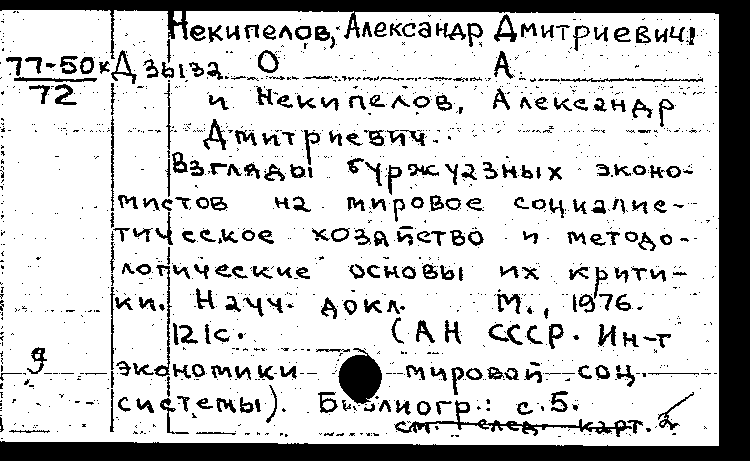 Некипелов, Александр Дмитриевич
77-50к Дзыза О А.
72
и Некипелов, Александр
Дмитриевич.
Взгляды буржуазных эконо-
мистов на мировое социалис-
тическое хозяйство и методо-
логические основы их крити-
ки. Науч. докл. М., 1976.
121с. (АН СССР. Ин-т
экономики мировой соц.
системы). Библиогр.: с.5.
см. след. карт. 2
9